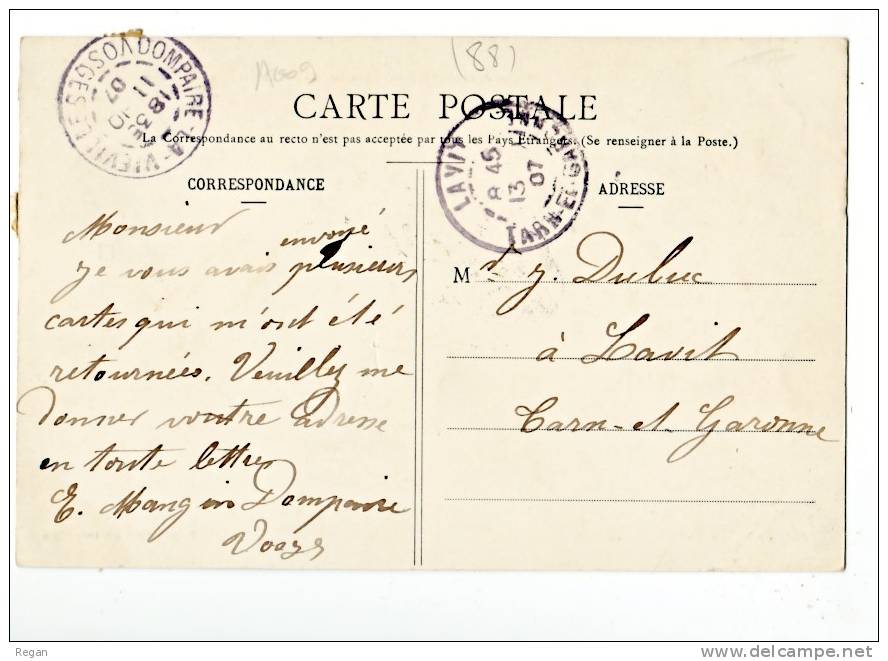 (88)
CARTE POSTALE
La Correspondance au recto n'est pas acceptée par tous les Pays Étrangers. (Se renseigner à la Poste.)
DOMPAIRE-LA-VIEVILLE VOSGES
18
11
07
LAVIT
TARN-ET-GARONNE
8 45
13
07
CORRESPONDANCE
Monsieur
envoyé
je vous avais plusieurs
cartes qui m'ont été
retournées. Veuillez me
donner voutre adresse
en toute lettres
E. Mangin Dompaire
Vosges
ADRESSE
M r J. Dubuc
à Lavit
Tarn-et-Garonne
Regan
www.delcampe.net